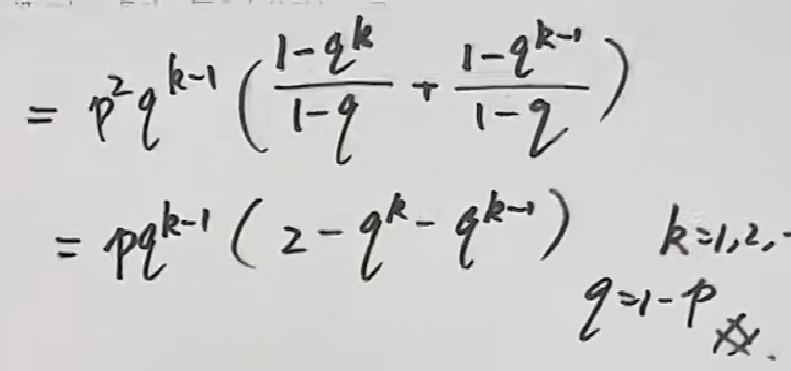 = p²q^{k-1} ( \frac{1-q^k}{1-q} + \frac{1-q^{k-1}}{1-q} )
= pq^{k-1} ( 2 - q^k - q^{k-1} ) k=1,2,
q=1-p